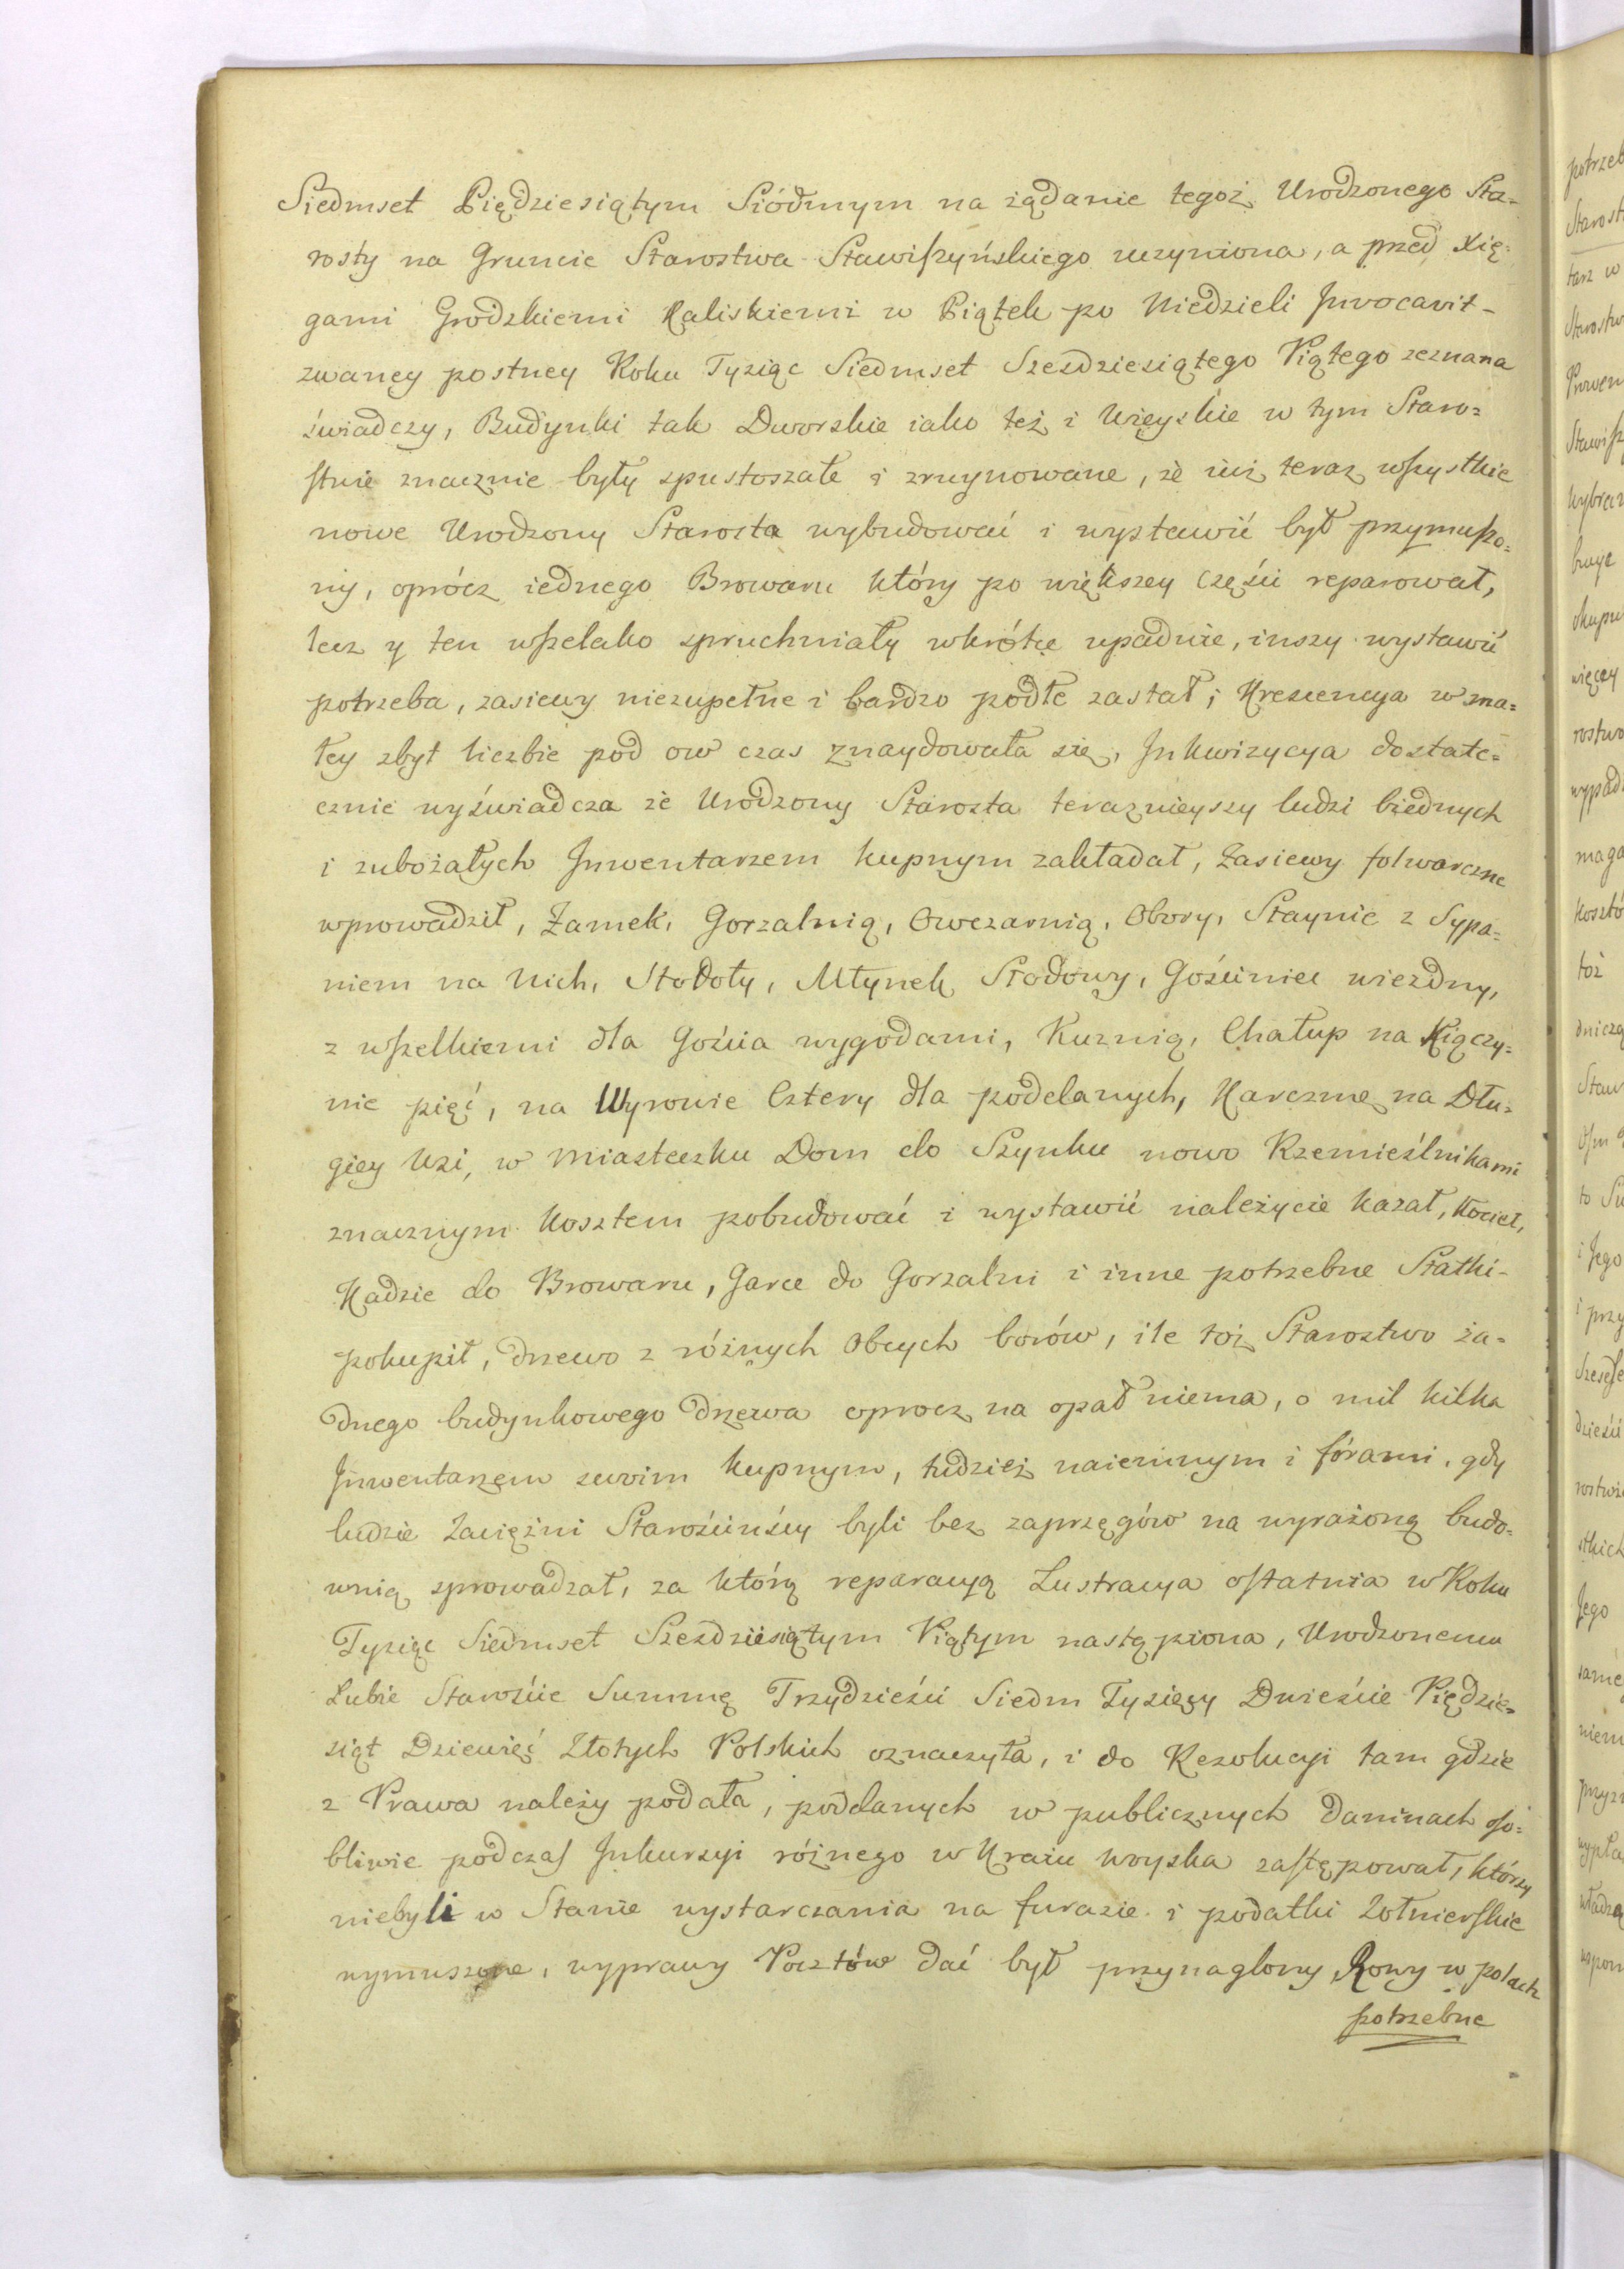 Siedmset Piędziesiątym Siódmym na żądanie tegoż Urodzonego Sta=
rosty na Gruncie Starostwa Stawiszyńskiego uczyniona, a przed Xię=
gami Grodzkiemi Kaliskiemi w Piątek po Niedzieli Invocavit-
zwaney postney Roku Tysiąc Siedmset Szesdziesiątego Piątego zeznana
świadczy, Budynki tak Dworskie iako też i Wieyskie w tym Staro=
stwie znacznie były spustoszałe i zruynowane, że iuż teraz wszystkie
nowe Urodzony Starosta wybudować i wystawić był przymuszo=
ny, oprócz iednego Browaru który po większey części reparował,
lecz y ten wszelako spruchniały wkrótce upadnie, inszy wystawić
potrzeba, zasiewy niezupełne i bardzo podłe zastał; Krescencya w ma=
łey zbyt liczbie pod ow czas znaydowała się, Inkwizycya dostate=
cznie wyświadcza że Urodzony Starosta teraznieyszy ludzi biednych
i zubożałych Inwentarzem kupnym zakładał, Zasiewy folwarczne
wprowadził, Zamek, Gorzalnią, Owczarnią, Obory, Staynie z Sypa=
niem na Nich, Stodoły, Młynek Słodowy, Gościniec wiezdny,
z wszelkiemi dla Gościa wygodami, Kuznią, Chałup na Kiączy=
nie pięć, na Wyrowie Cztery dla poddanych, Karczmę na Dłu=
giey Wsi, w Miasteczku Dom do Szynku nowo Rzemieślnikami
znacznym Kosztem pobudować i wystawić należycie kazał, Kocieł,
Kadzie do Browaru, Garce do Gorzalni i inne potrzebne Statki-
pokupił, drzewo z różnych Obcych borów, ile toż Starostwo ża=
dnego budynkowego drzewa oprocz na opał niema, o mil kilka
Inwentarzem swoim kupnym, tudzież naiemnym i fórami, gdy
ludzie Zaciężni Starościńscy byli bez zaprzęgów na wyrażoną budo=
wnią sprowadzał, za którą reparacyą Lustracya ostatnia w Roku
Tysiąc Siedmset Szesdziesiątym Piątym nastąpiona, Urodzonemu
Lubie Starościc Summę Trzydzieści Siedm Tysięcy Dwieście Piędzie=
siąt Dziewięć Złotych Polskich oznaczyła, i do Rezolucyi tam gdzie
z Prawa należy podała, poddanych w publicznych Daninach oso=
bliwie podczas Inkursyi różnego w Kraiu woyska zastępował, którzy
niebyli w Stanie wystarczania na furaże i podatki Żołnierskie
wymuszone, wyprawy Pocztów dać był przynaglony, Rowy w polach
potrzebne
potrzeb
Starost
tarz w
Starostw
Prowen
Stawisz
wybrac
okupu
więcey
rostwo
maga
Koszto
toż
dnicz
Staw
to Su
i Jego
i przy
dzieści
stkich
Jego
same
niem
wypła